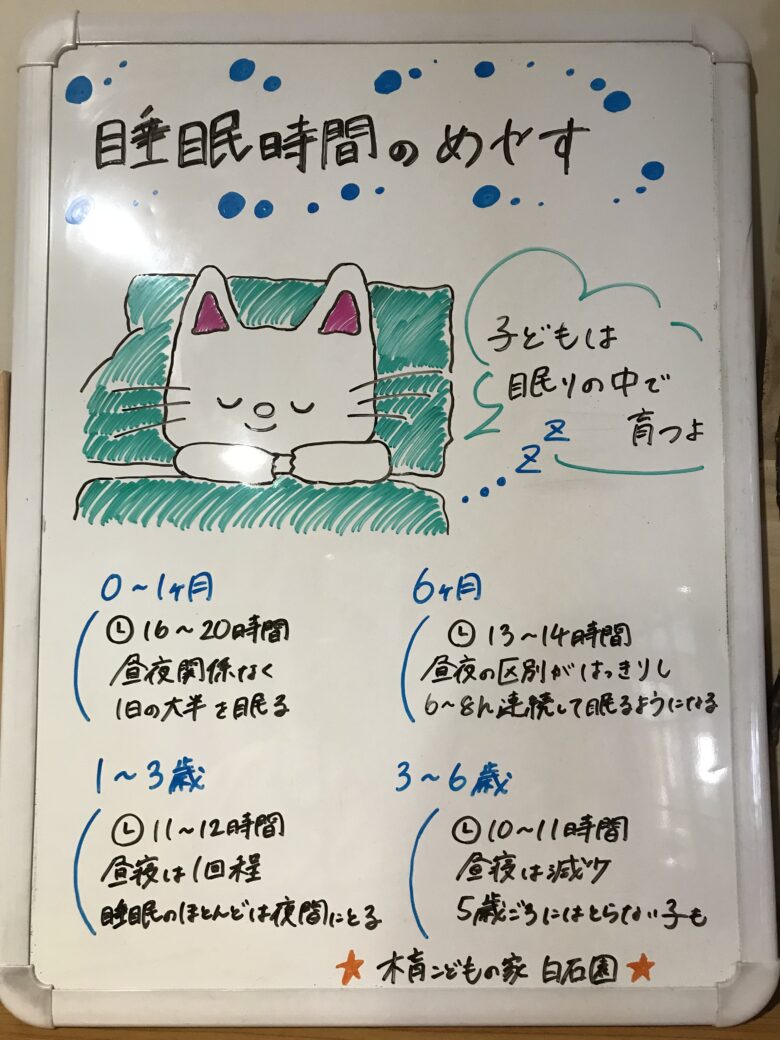 睡眠時間のめやす
子どもは
眠りの中で
育つよ
z z
0～1ヶ月
16～20時間
昼夜関係なく
1日の大半を眠る
6ヶ月
13～14時間
昼夜の区別がはっきりし
6～8h連続して眠るようになる
1～3歳
11～12時間
昼寝は1回程
睡眠のほとんどは夜間にとる
3～6歳
10～11時間
昼寝は減り
5歳ごろにはとらない子も
木育こどもの家 白石園